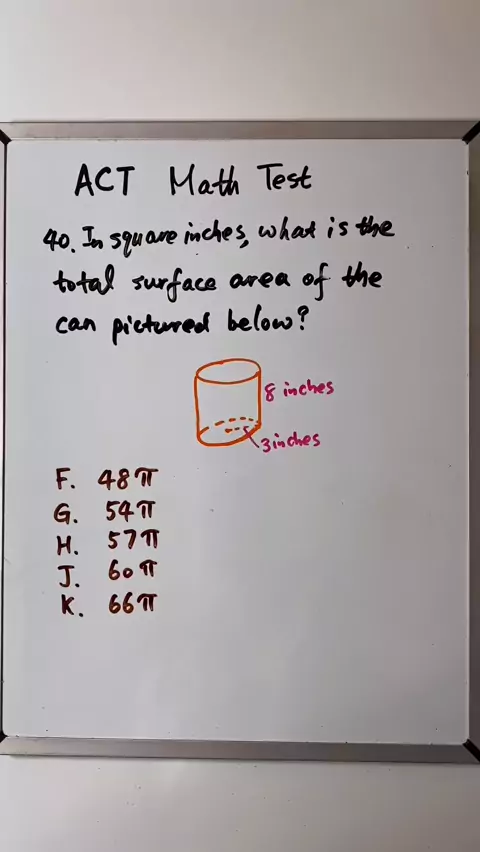 ACT Math Test
40. In square inches, what is the
total surface area of the
can pictured below?
8 inches
3 inches
F. 48π
G. 54π
H. 57π
J. 60π
K. 66π